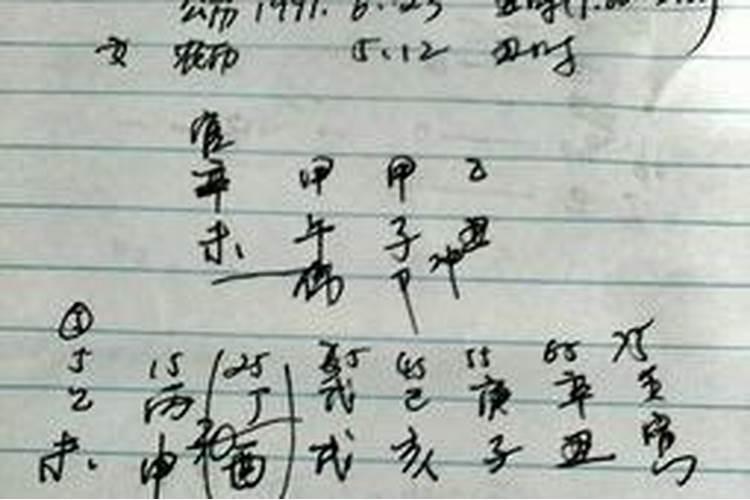 公历1991. 6.23 丑时(1:00
女 农历 5.12 丑时
官
辛 甲 甲 乙
未 午 子 丑
伤 冲
⑤
5 15 25 35 45 55 65 75
乙 丙 丁 戊 己 庚 辛 壬
未 申 酉 戌 亥 子 丑 寅